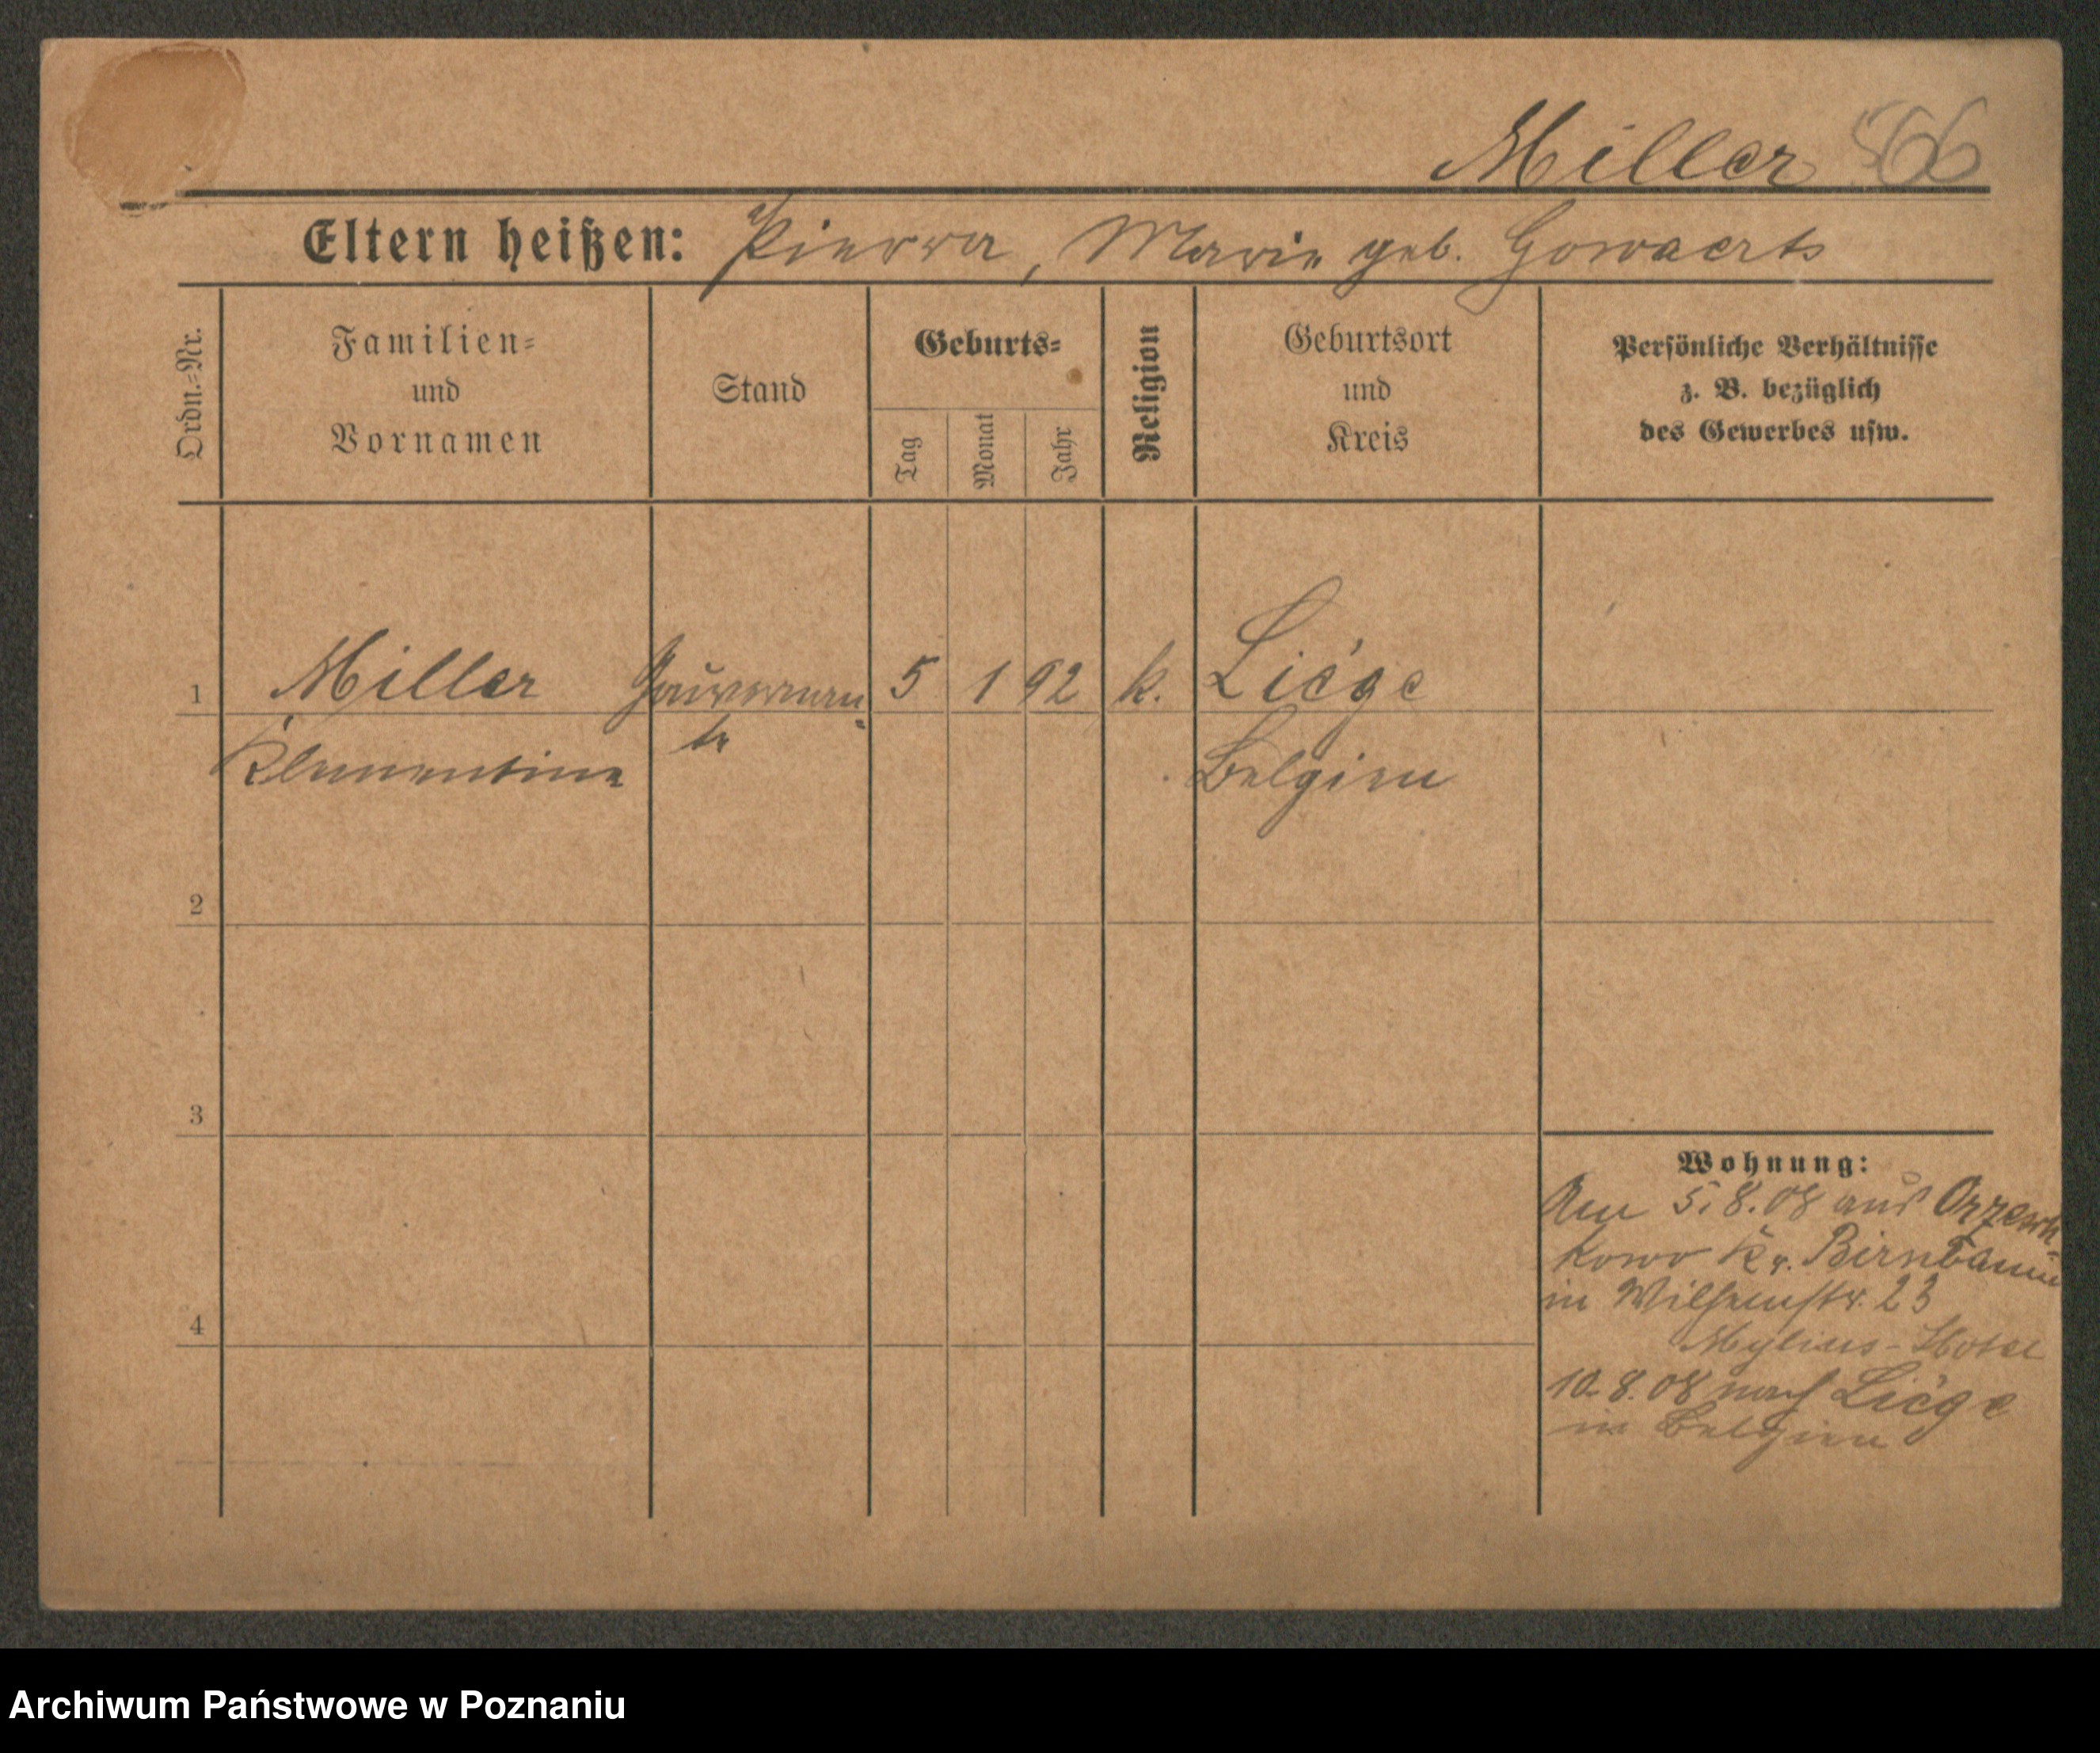 Miller 566
Eltern heißen: Pierre, Marie geb. Gowaerts
Ordn.-Nr.
Familien-
und
Vornamen
Stand
Geburts-
Tag
Monat
Jahr
Religion
Geburtsort
und
Kreis
Persönliche Verhältnisse
z. B. bezüglich
des Gewerbes usw.
1 Miller Gouvernan- 5 1 92 k. Liége
Klementine te Belgien
2
3
4
Wohnung:
Am 5.8.08 aus
kowo Kr. Birnbaum
in Wilhelmstr. 23
Mylius-Hotel
10.8.08 nach Liége
in Belgien
Archiwum Państwowe w Poznaniu